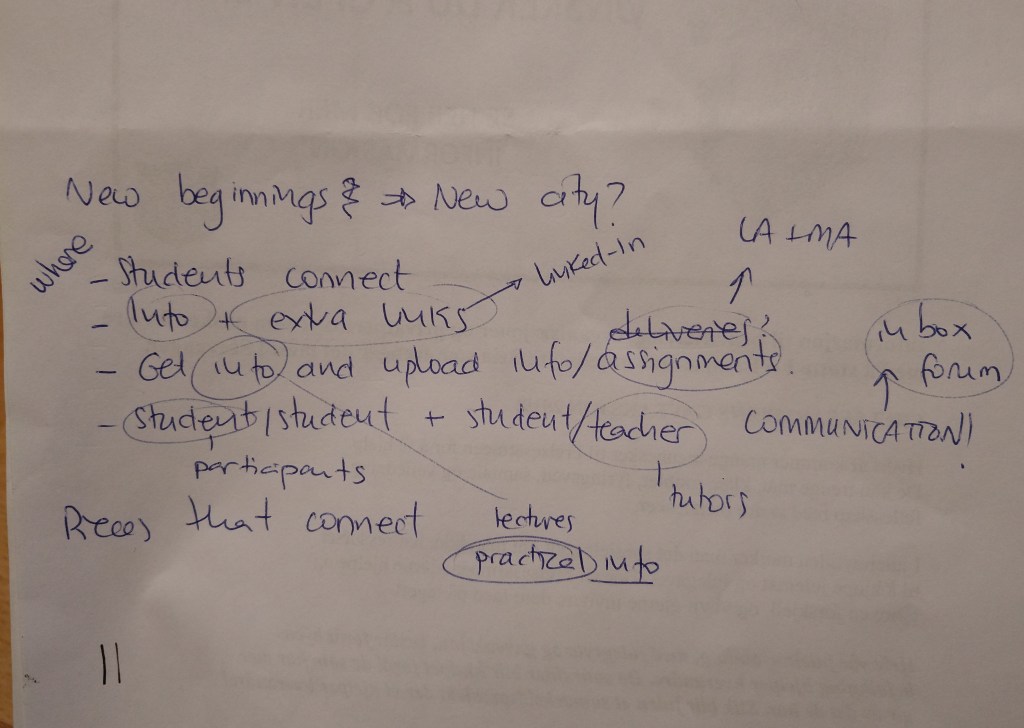 New beginnings ⇒ New city?
LA + MA
where
- Students connect
Linked-in
- Info + extra links
deliveries?
- Get info and upload info/assignments.
in box
forum
- Student/student + student/teacher
COMMUNICATION!
participants
tutors
that connect
lectures
practical info
11